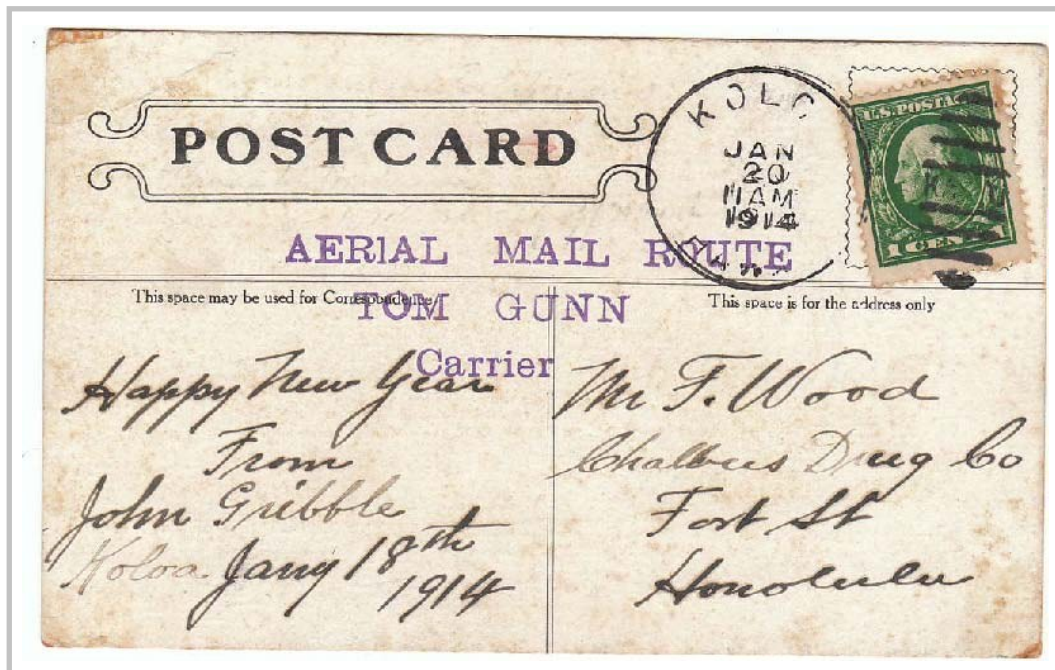 POST CARD
KOLO
JAN
20
11 AM
1914
U.S. POSTAG
1 CEN 1
AERIAL MAIL ROUTE
TOM GUNN
Carrier
This space may be used for Correspondence
This space is for the address only
Happy New Year
From
John Gribble
Koloa Jany 18th
1914
Mr F. Wood
Drug Co
Fort St
Honolulu